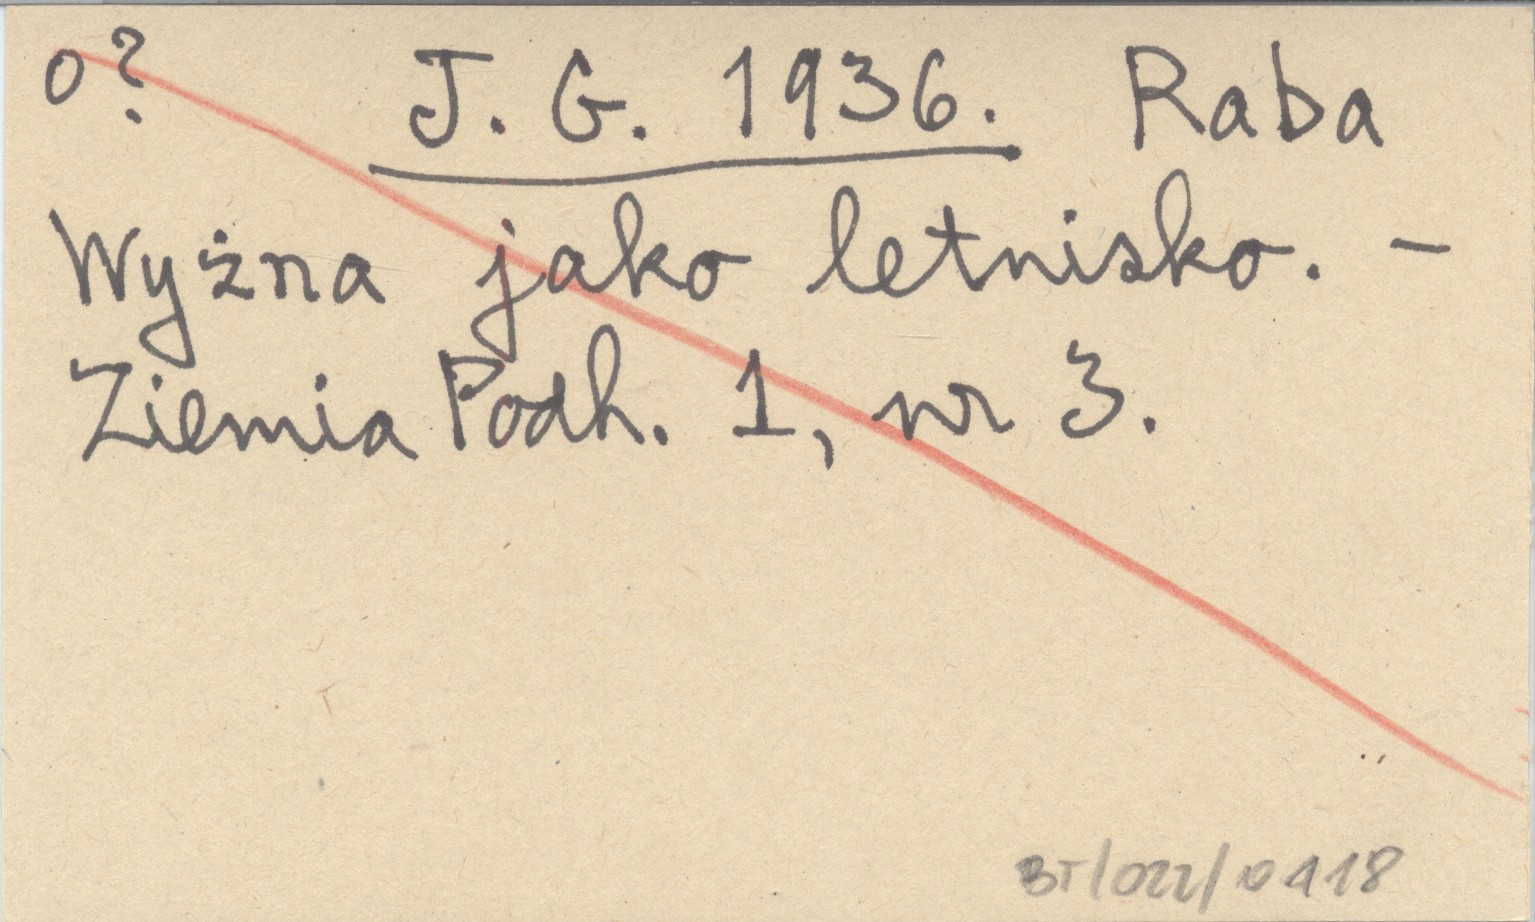 o? J. G. 1936. Raba
Wyżna jako letnisko. –
Ziemia Podh. 1, nr 3.
BT/022/0118